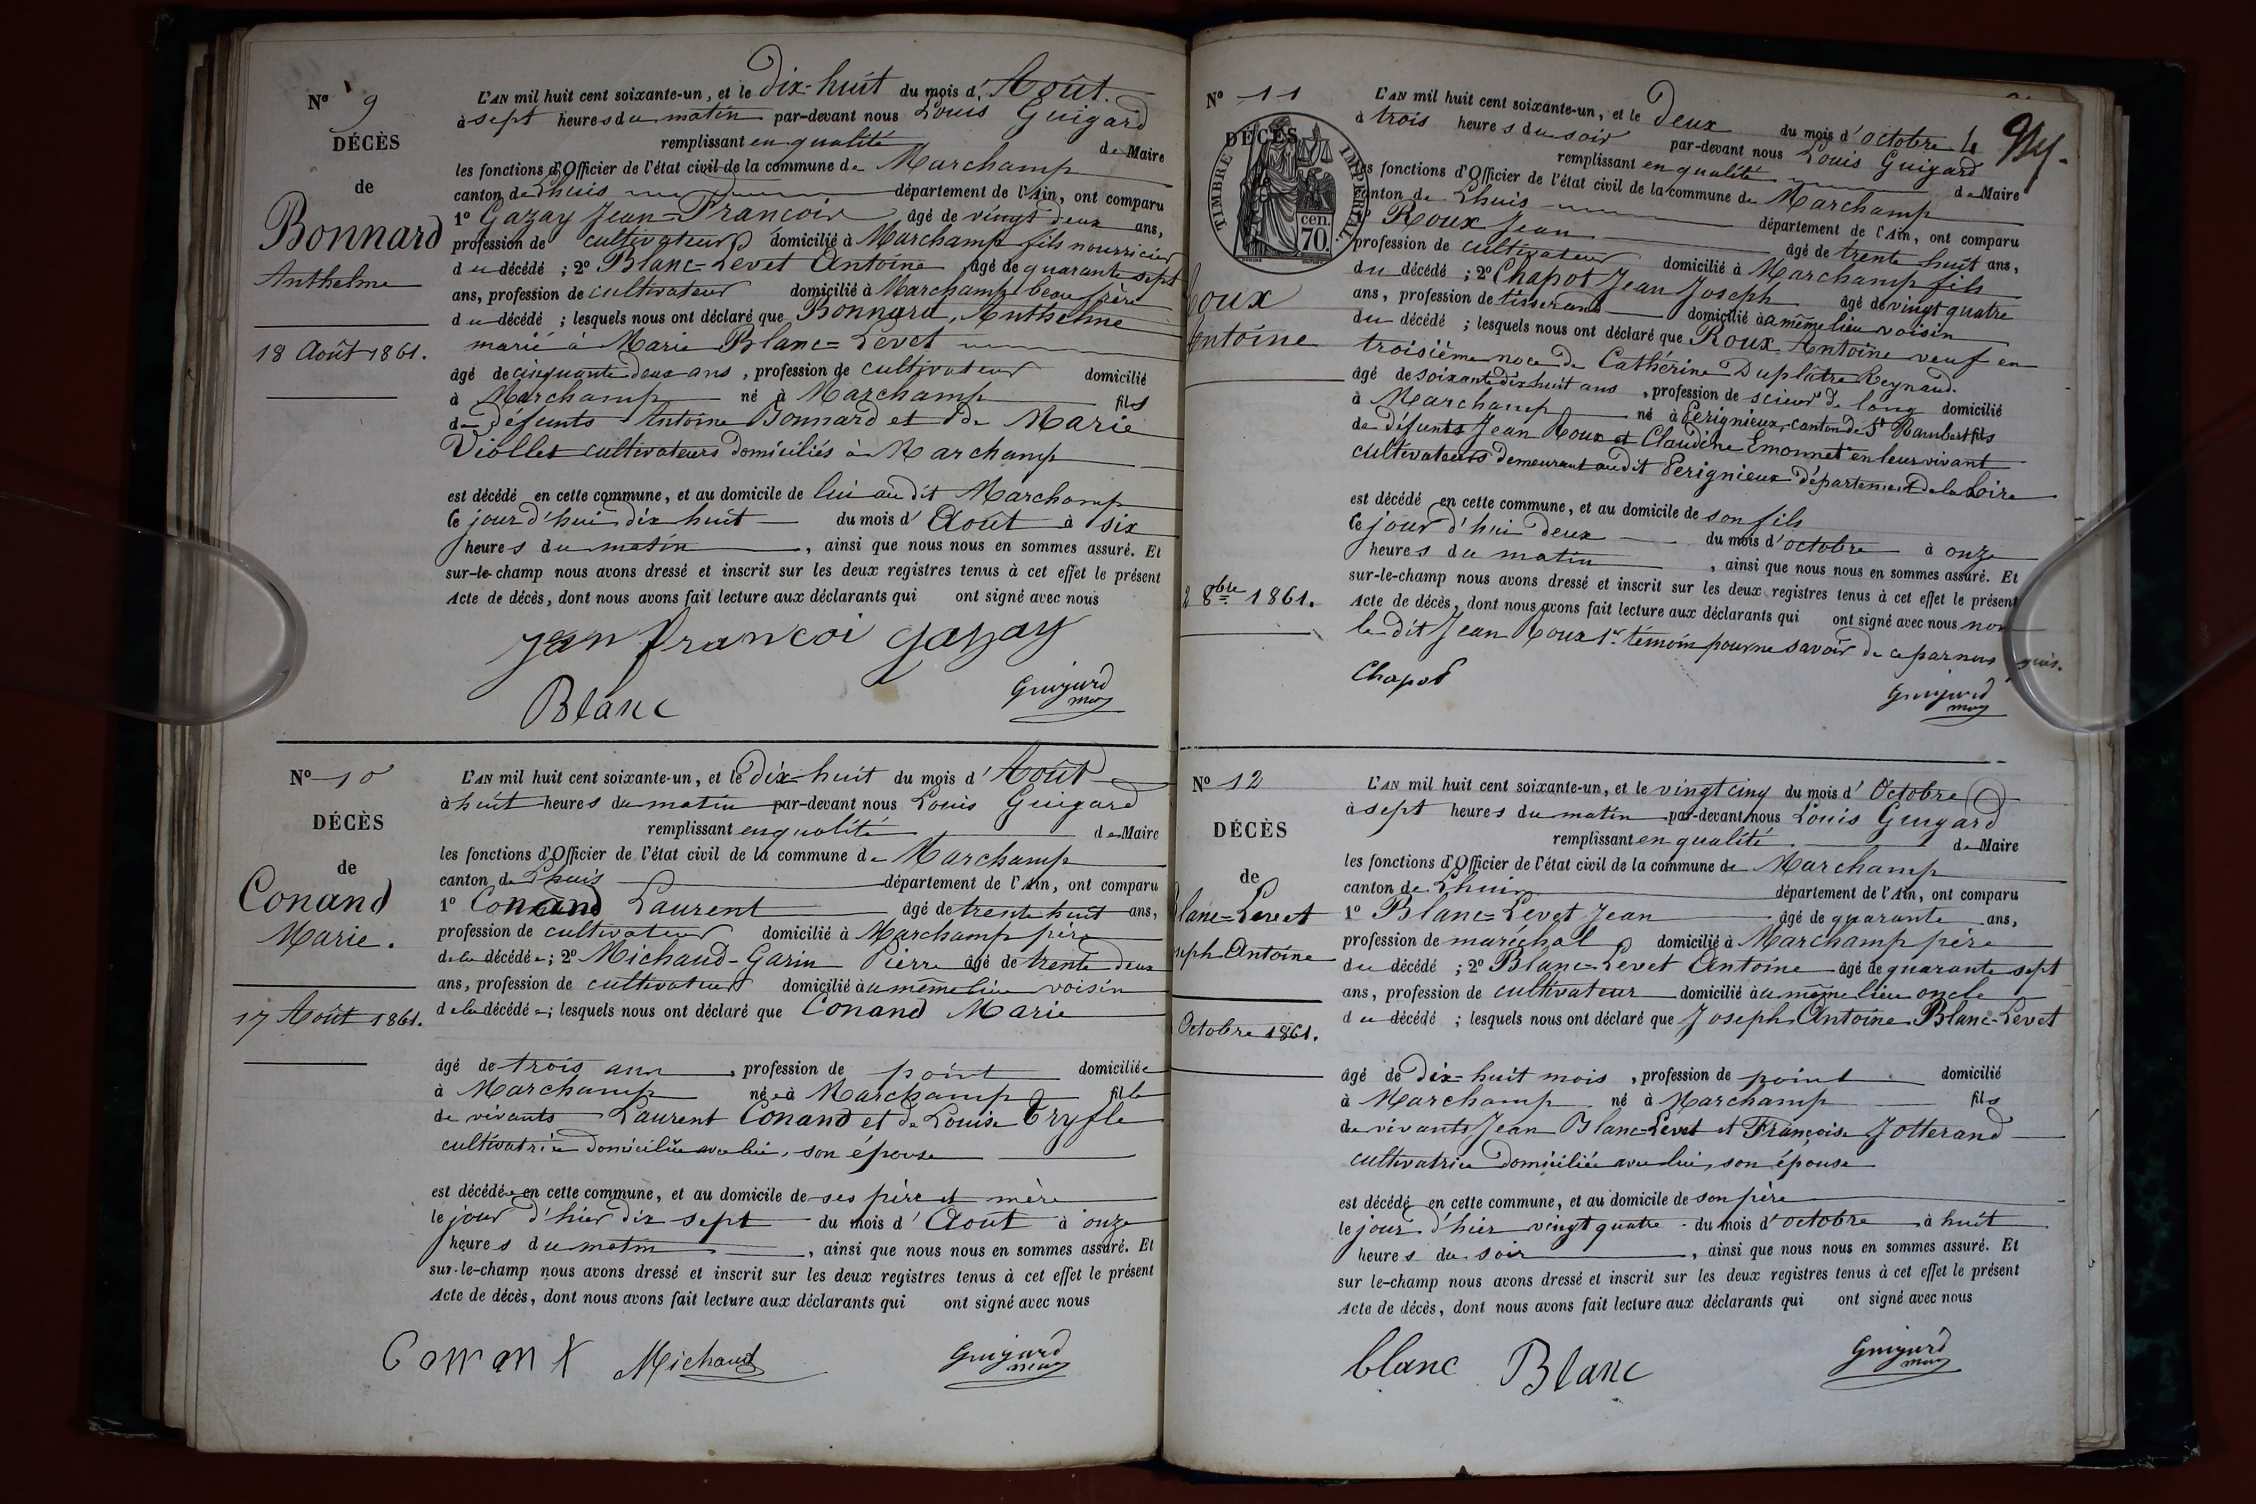 N° 9
DÉCÈS
de
Bonnard
Anthelme
18 Août 1861.
L'AN mil huit cent soixante-un, et le dix-huit du mois d'Août.
à sept heures du matin par-devant nous Louis Guigard
remplissant en qualité de Maire
les fonctions d'Officier de l'état civil de la commune de Marchamp
canton de Lhuis département de l'Ain, ont comparu
1° Gazay Jean-François âgé de vingt deux ans,
profession de cultivateur domicilié à Marchamp fils nourricier
du décédé ; 2° Blanc=Levet Antoine âgé de quarante sept
ans, profession de cultivateur domicilié à Marchamp beau frère
du décédé ; lesquels nous ont déclaré que Bonnard, Anthelme
marié à Marie Blanc=Levet
âgé de cinquante deux ans, profession de cultivateur domicilié
à Marchamp né à Marchamp fils
de défunts Antoine Bonnard et de Marie
Viollet cultivateurs domiciliés à Marchamp
est décédé en cette commune, et au domicile de lui au dit Marchamp
le jour d'hui dix huit du mois d'Août à six
heures du matin, ainsi que nous nous en sommes assuré. Et
sur-le-champ nous avons dressé et inscrit sur les deux registres tenus à cet effet le présent
Acte de décès, dont nous avons fait lecture aux déclarants qui ont signé avec nous
jean francoi gazay
Blanc Guigard
N° 10
DÉCÈS
de
Conand
Marie.
17 Août 1861.
L'AN mil huit cent soixante-un, et le dix-huit du mois d'Août
à huit heures du matin par-devant nous Louis Guigard
remplissant en qualité de Maire
les fonctions d'Officier de l'état civil de la commune de Marchamp
canton de Lhuis département de l'Ain, ont comparu
1° Conand Laurent âgé de trente huit ans,
profession de cultivateur domicilié à Marchamp père
de la décédée ; 2° Michaud-Garin Pierre âgé de trente deux
ans, profession de cultivateur domicilié au même lieu voisin
de la décédée ; lesquels nous ont déclaré que Conand Marie
âgé de trois ans, profession de point domiciliée
à Marchamp née à Marchamp fille
de vivants Laurent Conand et de Louise Tryfle
cultivatrice domiciliée avec lui, son épouse
est décédée en cette commune, et au domicile de ses père et mère
le jour d'hier dix sept du mois d'Août à onze
heures du matin, ainsi que nous nous en sommes assuré. Et
sur-le-champ nous avons dressé et inscrit sur les deux registres tenus à cet effet le présent
Acte de décès, dont nous avons fait lecture aux déclarants qui ont signé avec nous
Michaud Guigard
N° 11
DÉCÈS
TIMBRE IMPERIAL
70 cen.
Roux
Antoine
2 8bre 1861.
L'AN mil huit cent soixante-un, et le deux du mois d'octobre
à trois heures du soir par-devant nous Louis Guigard
remplissant en qualité de Maire
les fonctions d'Officier de l'état civil de la commune de Marchamp
canton de Lhuis département de l'Ain, ont comparu
Roux Jean âgé de trente huit ans,
profession de cultivateur domicilié à Marchamp fils
du décédé ; 2° Chapot Jean Joseph âgé de vingt quatre
ans, profession de tisserand domicilié au même lieu voisin
du décédé ; lesquels nous ont déclaré que Roux Antoine veuf en
troisième noce de Cathérine Duplâtre Reynaud.
âgé de soixante dix huit ans, profession de scieur de long domicilié
à Marchamp né à Pérignieux, canton de St Rambert fils
de défunts Jean Roux et Claudène Emonnet en leur vivant
cultivateurs demeurant audit Périgneux département de la Loire
est décédé en cette commune, et au domicile de son fils
le jour d'hui deux du mois d'octobre à onze
heures du matin, ainsi que nous nous en sommes assuré. Et
sur-le-champ nous avons dressé et inscrit sur les deux registres tenus à cet effet le présent
Acte de décès, dont nous avons fait lecture aux déclarants qui ont signé avec nous non
le dit Jean Roux 1er témoin pour ne savoir de ce par nous requis.
Chapot Guigard
N° 12
DÉCÈS
de
Blanc=Levet
Joseph Antoine
Octobre 1861.
L'AN mil huit cent soixante-un, et le vingt cinq du mois d'Octobre
à sept heures du matin par-devant nous Louis Guigard
remplissant en qualité de Maire
les fonctions d'Officier de l'état civil de la commune de Marchamp
canton de Lhuis département de l'Ain, ont comparu
1° Blanc=Levet Jean âgé de quarante ans,
profession de maréchal domicilié à Marchamp père
du décédé ; 2° Blanc-Levet Antoine âgé de quarante sept
ans, profession de cultivateur domicilié au même lieu oncle
du décédé ; lesquels nous ont déclaré que Joseph Antoine Blanc-Levet
âgé de dix=huit mois, profession de point domicilié
à Marchamp né à Marchamp fils
de vivants Jean Blanc-Levet et Françoise Jotterand
cultivatrice domiciliée avec lui, son épouse
est décédé en cette commune, et au domicile de son père
le jour d'hier vingt quatre du mois d'octobre à huit
heures du soir, ainsi que nous nous en sommes assuré. Et
sur le-champ nous avons dressé et inscrit sur les deux registres tenus à cet effet le présent
Acte de décès, dont nous avons fait lecture aux déclarants qui ont signé avec nous
blanc Blanc Guigard